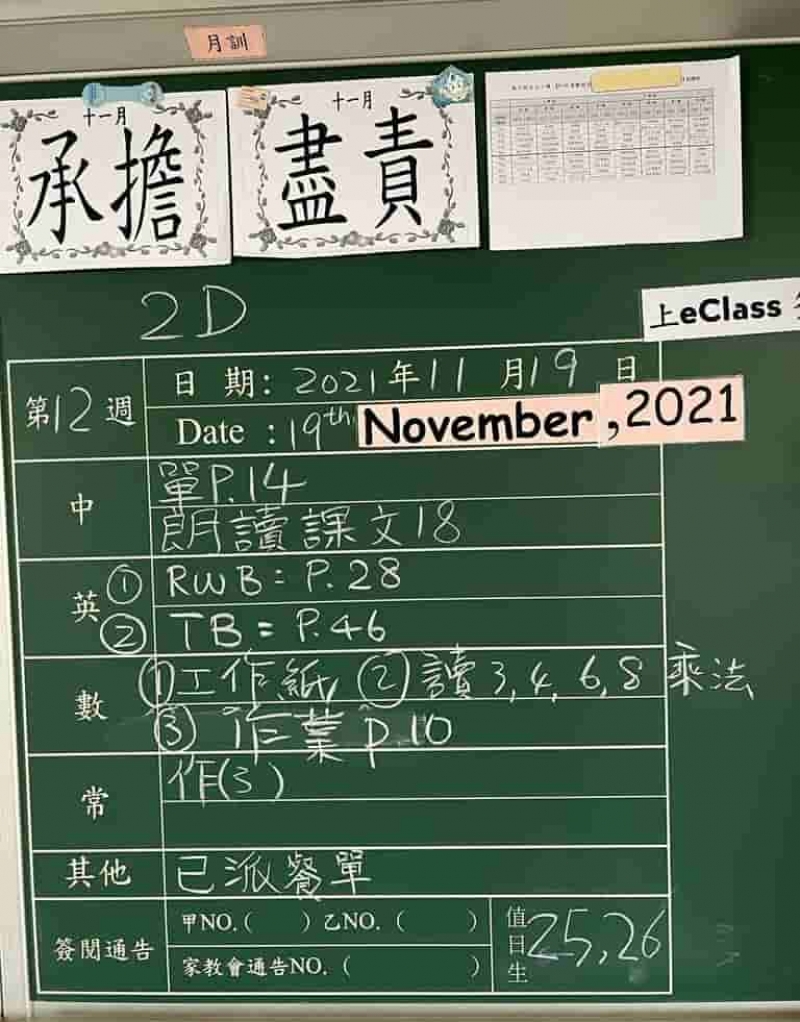 月訓
十一月
承擔
十一月
盡責
2D
上eClass
第12週
日 期: 2021年11月19日
Date : 19th November, 2021
中
單P.14
朗讀課文18
英
① RWB: P.28
② TB: P.46
數
①工作紙 ②讀3,4,6,8乘法
③作業P.10
常
作(3)
其他
已派餐單
簽閱通告
甲NO.( )乙NO.( )
家教會通告NO.( )
值日生
25,26